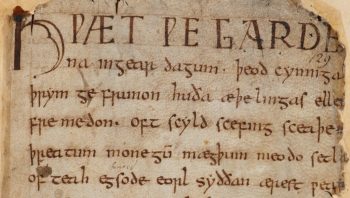 HǷÆT ǷE GARDE
129
na ingear dagum. þeod cyninga
þrym ge frunon huða æþelingas elle
fre medon. oft scyld scefing sceaþe
þreatum monegū mægþum meodo setl
of teah egsode eorl syððan ærest ƿea